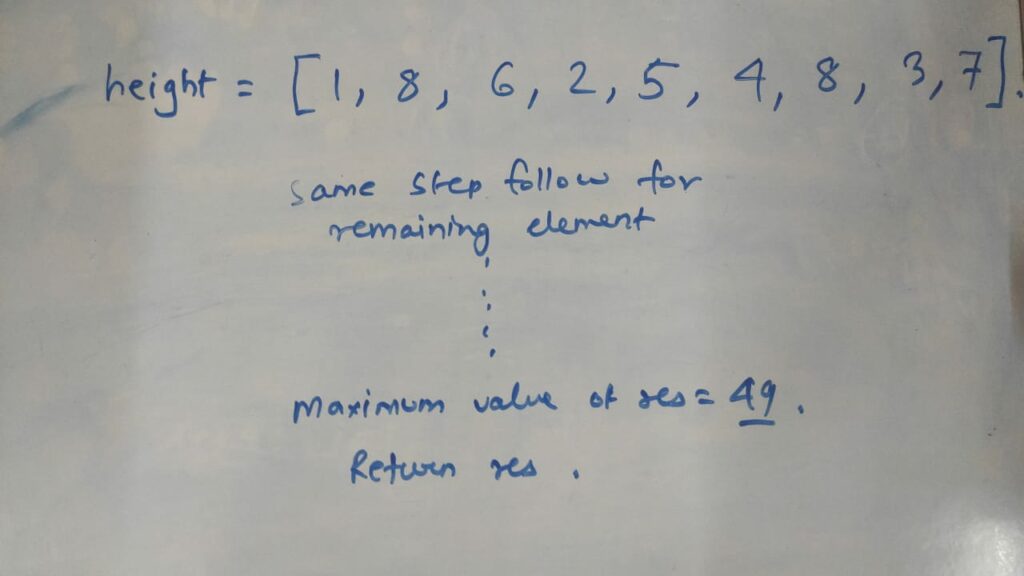 height = [1, 8, 6, 2, 5, 4, 8, 3, 7].
same step follow for
remaining element
maximum value of res = 49.
Return res.